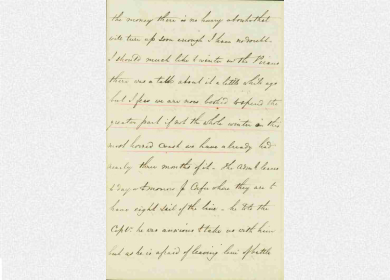 the money there is no hurry about that
will turn up soon enough I have no doubt.
I should much like to winter in the Piraeus
there was a talk about it a little while ago
but I fear we are now booked to spend the
greater part if not the whole winter in this
most horrid coast we have already had
nearly three months of it. The Adml leaves
to day or tomorrow for Corfu where they are to
have eight Sail of the line - he told the
Captn he was anxious to take us with him
but as he is afraid of leaving line of battle